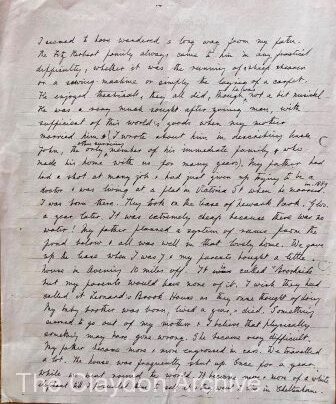 I seemed to have wandered a long way from my father.
The Fitz Herbert family always came to him in any practical
difficulty, whether it was the running of sheep shearer
or a sewing machine or simply the laying of a carpet.
He enjoyed theatricals, they all did, though not a bit musical
He was a very much sought after young man, with
sufficient of this world's goods when my mother
married him & I wrote about him in describing
John, the only other member of his immediate family, & who
made his home with us for many years). My father had
had a shot at many jobs & had just given up trying to be a
doctor & was living at a flat in Victoria St when he married
I was born there. They took on the lease of Newark Park
a year later. It was extremely cheap because there was no
water! My father planned a system of rams from the
pond below & all was well in that lovely home. We gave
up the lease when I was 7 & my parents bought a little
house in Avening 10 miles off. It was called "Brookside"
but my parents would have none of it. I wish they had
called it Leonard's Brook House as they once thought of doing.
My baby brother was born, lived a year & died. Something
seemed to go out of my mother & I believe that physically
something may have gone wrong. She became very difficult.
My father became more & more engrossed in cars. We travelled
a lot. The house was frequently shut up for a year
while we went round the world. It became more & more of a
in Cheltenham.
The Clayton Archive